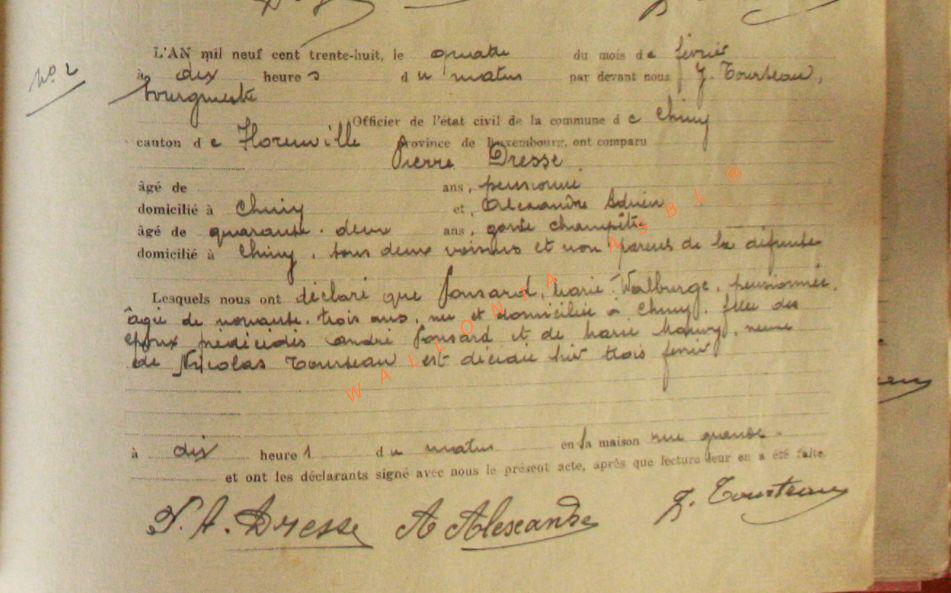 No. 2
L'AN mil neuf cent trente-huit, le quatre du mois de février
à dix heures du matin par devant nous J. Tourteau,
bourgmestre
Officier de l'état civil de la commune de Chiny
canton de Florenville province de Luxembourg, ont comparu
Pierre Dresse
âgé de ans, pensionné
domicilié à Chiny et, Alexandre Adrien
âgé de quarante-deux ans, garde champêtre
domicilié à Chiny, tous deux voisins et non parents de la défunte
Lesquels nous ont déclaré que Ponsard, Marie Walburge, pensionnée,
âgée de nonante-trois ans, née et domiciliée à Chiny, fille des
époux prédécédés André Ponsard et de Marie, veuve
de Nicolas Tourteau est décédée hier trois février
à dix heures du matin en la maison rue grande.
et ont les déclarants signé avec nous le présent acte, après que lecture leur en a été faite.
P. A. Dresse A Alexandre J. Tourteau
WALLONIA ASBL ®